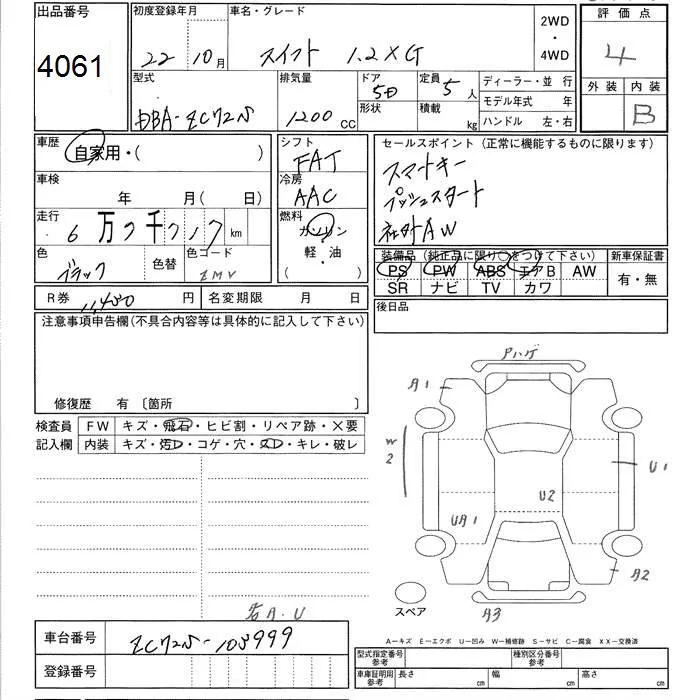 出品番号 初度登録年月 車名・グレード 2WD・4WD 評価点
4061 22年 10月 スイフト 1.2XG 4
型式 排気量 ドア 定員 ディーラー・並行 外装 内装
DBA-ZC72S 1200CC 5D 5人 モデル年式 年 B
形状 積載 kg ハンドル 左・右
車歴 自家用・( ) シフト FAT セールスポイント (正常に機能するものに限ります)
車検 年 月( 日) 冷房 AAC スマートキー
プッシュスタート
社外AW
走行 6万 千 km 燃料 ガソリン
軽・油
( )
色 ブラック 色替 色コード ZMV
装備品 (純正品に限り○をつけて下さい) 新車保証書
PS PW ABS エアB AW 有・無
SR ナビ TV カワ
R券 円 名変期限 月 日 後日品
注意事項申告欄(不具合内容等は具体的に記入して下さい)
修復歴 有 〔箇所 〕
検査員 FW キズ・飛石・ヒビ割・リペア跡・×要
記入欄 内装 キズ・汚D・コゲ・穴・スD・キレ・破レ
Pハゲ
A1
W2
U1
U2
UA1
A2
A3
スペア
各A.U
A－キズ E－エクボ U－凹み W－補修跡 S－サビ C－腐食 XX－交換済
車台番号 ZC72S-103999
登録番号
型式指定番号 参考 種別区分番号 参考
車庫証明用 参考 長さ cm 幅 cm 高さ cm